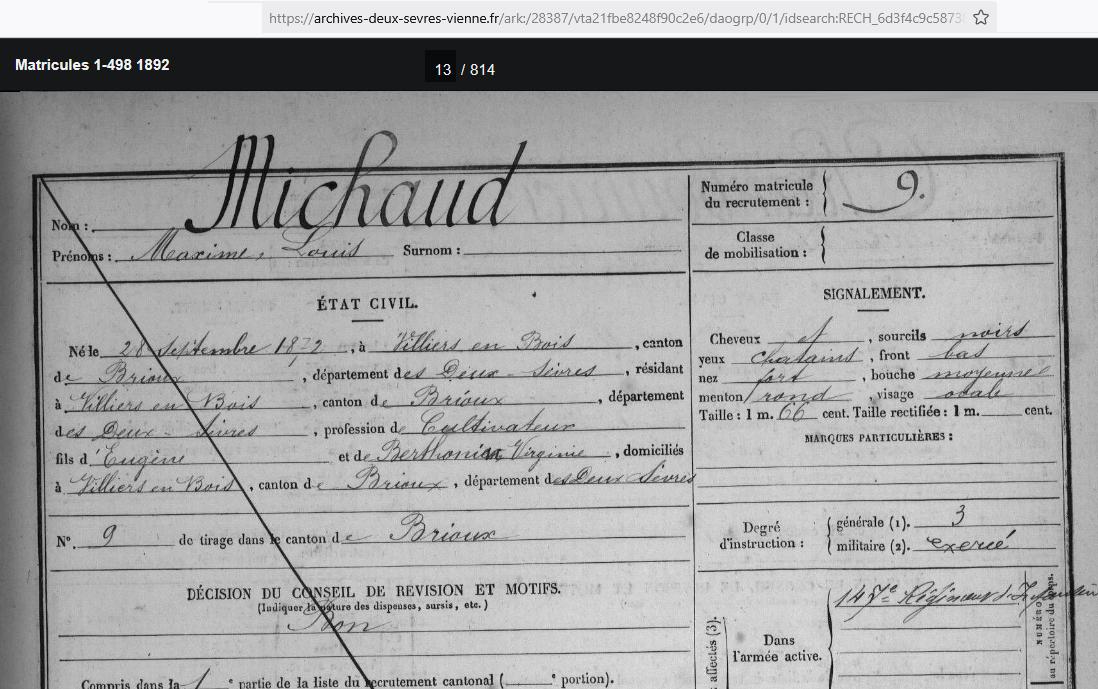 https://archives-deux-sevres-vienne.fr/ark:/28387/vta21fbe8248f90c2e6/daogrp/0/1/idsearch:RECH_6d3f4c9c5873
Matricules 1-498 1892
13 / 814
Michaud
Nom :
Prénoms : Maxime, Louis Surnom :
Numéro matricule du recrutement : 9.
Classe de mobilisation :
ÉTAT CIVIL.
Né le 28 septembre 1872, à Villiers en Bois, canton
de Brioux, département des Deux-Sèvres, résidant
à Villiers en Bois, canton de Brioux, département
des Deux-Sèvres, profession de Cultivateur
fils d'Eugène et de Virginie, domiciliés
à Villiers en Bois, canton de Brioux, département des Deux Sèvres
N°. 9 de tirage dans le canton de Brioux
DÉCISION DU CONSEIL DE REVISION ET MOTIFS.
(Indiquer la nature des dispenses, sursis, etc.)
Bon
Compris dans la 1e partie de la liste du recrutement cantonal ( e portion).
SIGNALEMENT.
Cheveux et, sourcils noirs
yeux chatains, front bas
nez fort, bouche moyenne
menton rond, visage ovale
Taille : 1 m. 66 cent. Taille rectifiée : 1 m. cent.
MARQUES PARTICULIÈRES :
Degré d'instruction :
générale (1). 3
militaire (2). exercé
affectés (3).
Dans l'armée active.
147e Régiment d'Infanterie
NUMÉRO
au répertoire du corps.